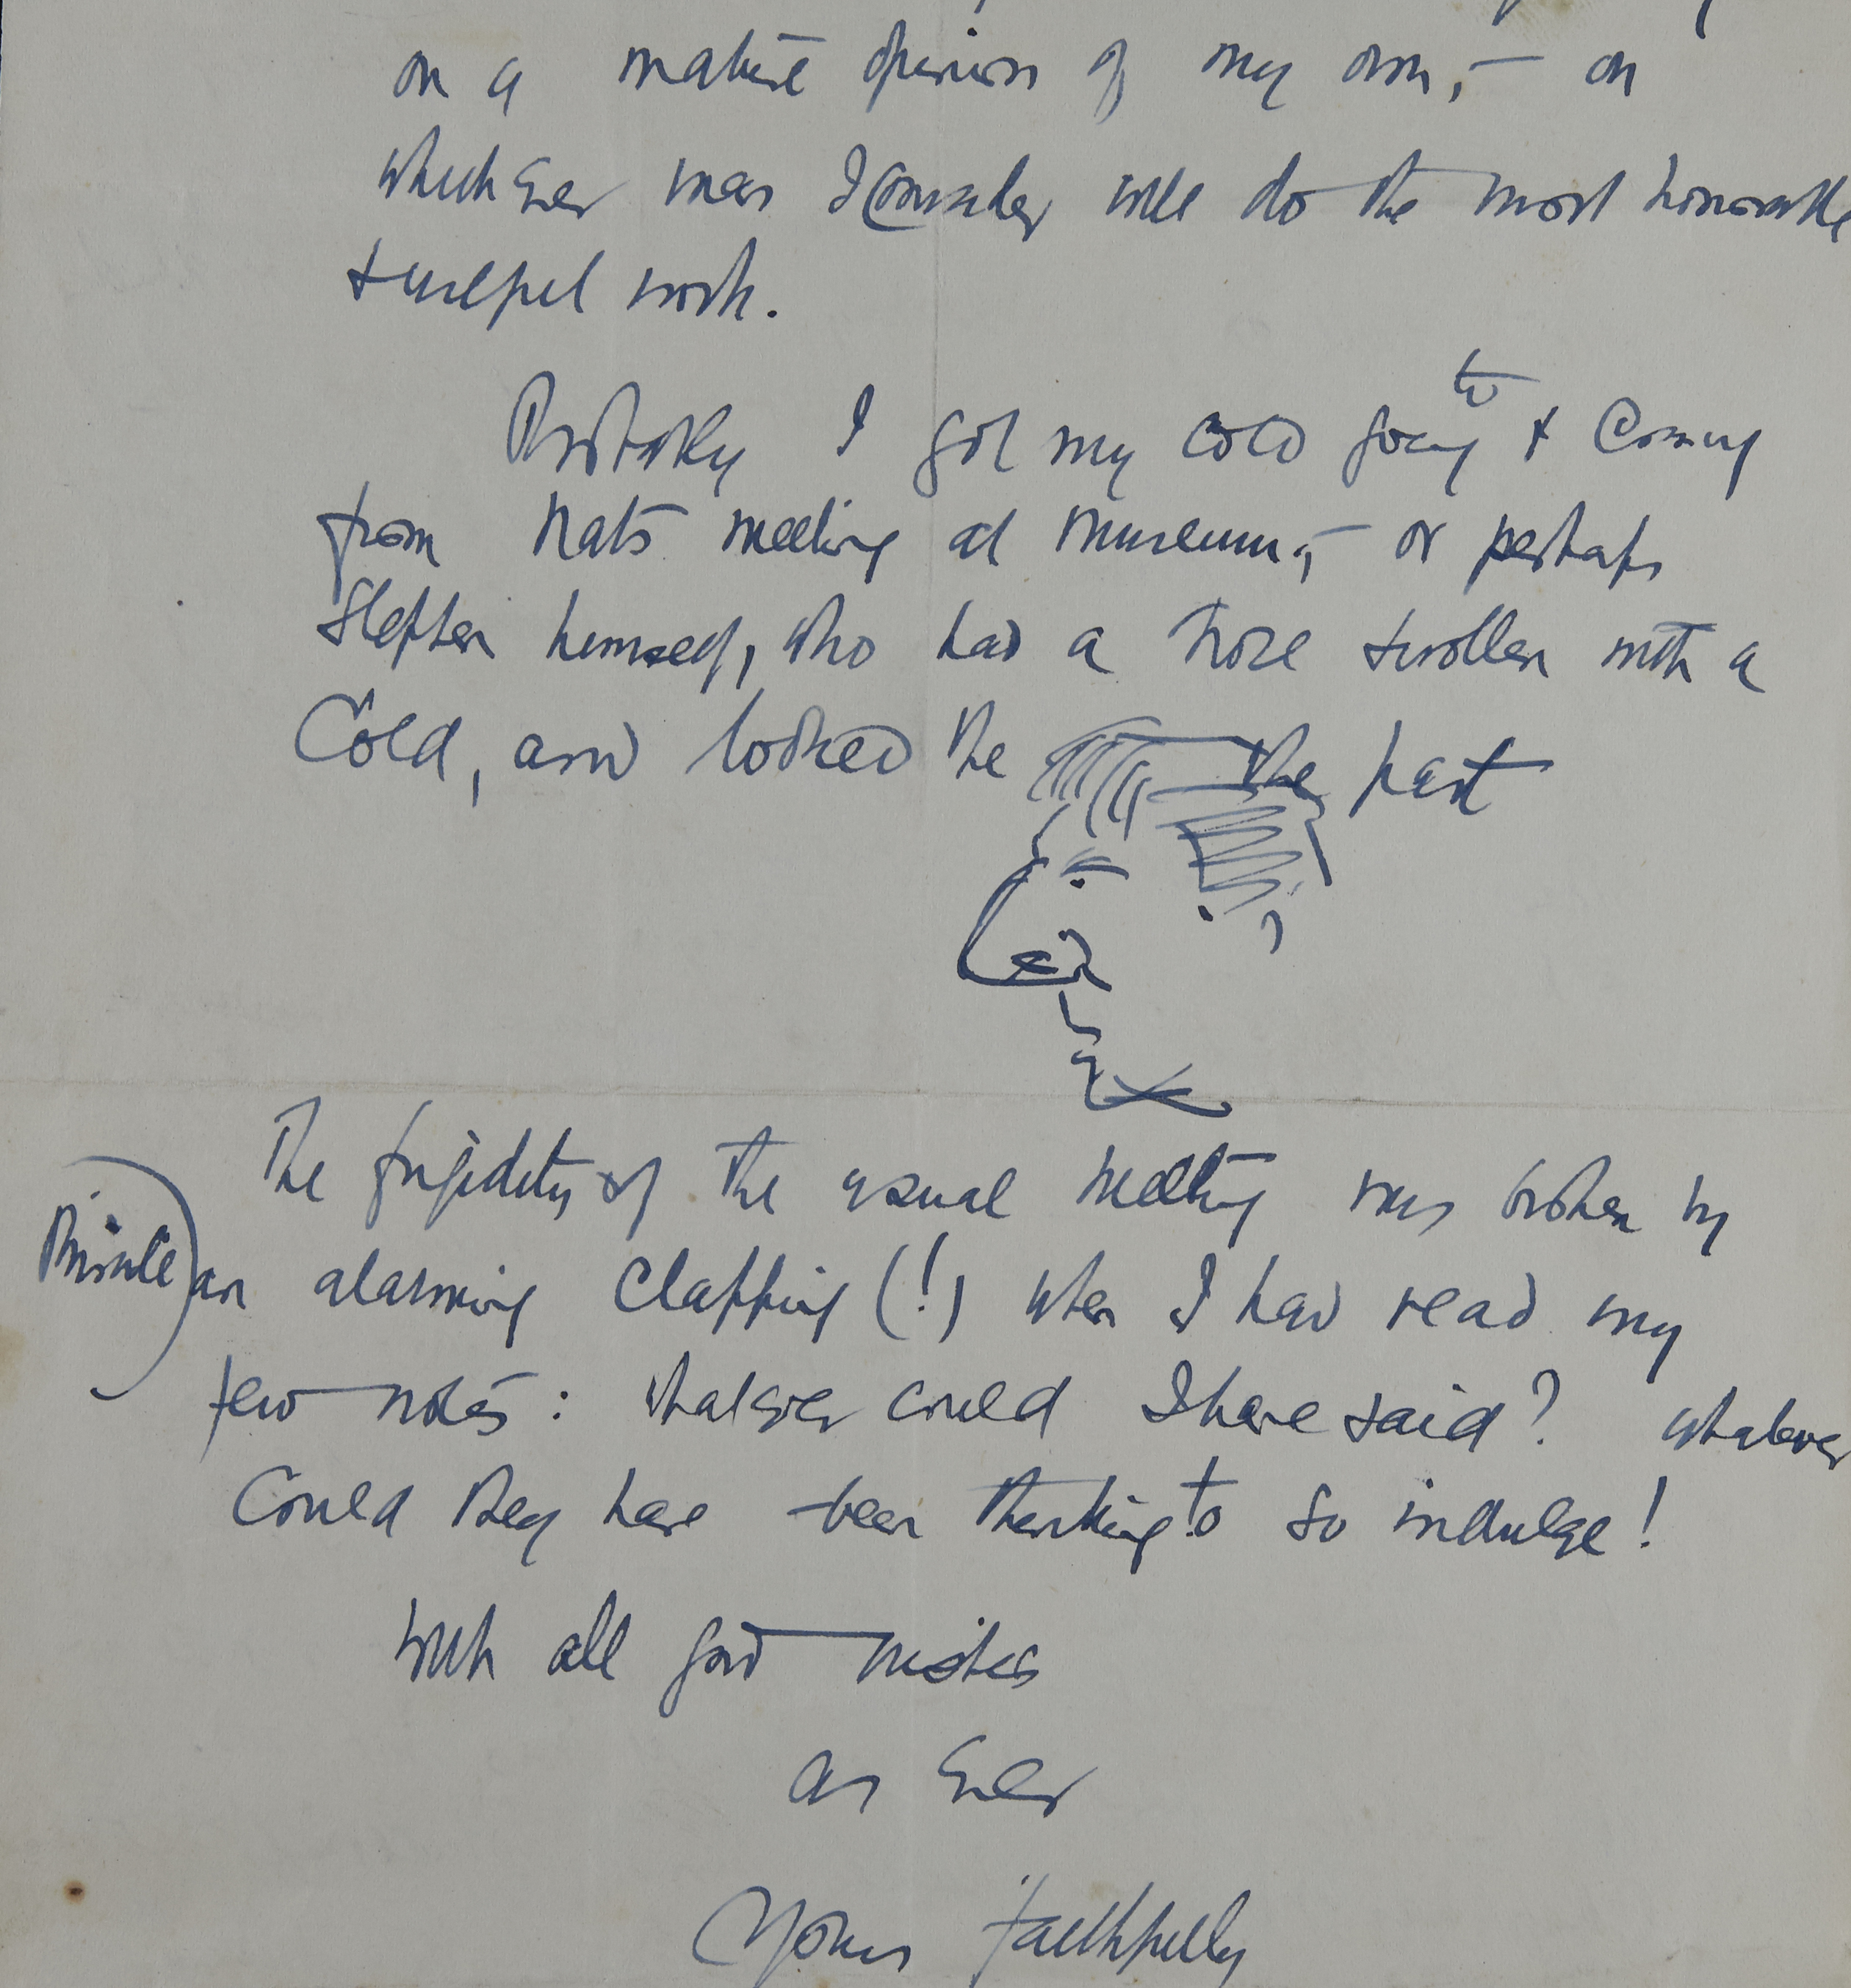 on a mature opinion of my own, – on
which ever man I consider will do the most honorable
& useful work.
Probably I got my cold going to & coming
from Nats meeting at museum, – or perhaps
himself, who had a nose swollen with a
Cold, and looked the the part
The frigidity of the usual meeting was broken by
Private
an alarming clapping (!) when I had read my
few notes: whatever could I have said? whatever
Could they have been thinking to so indulge!
With all good wishes
as Ever
Yours faithfully